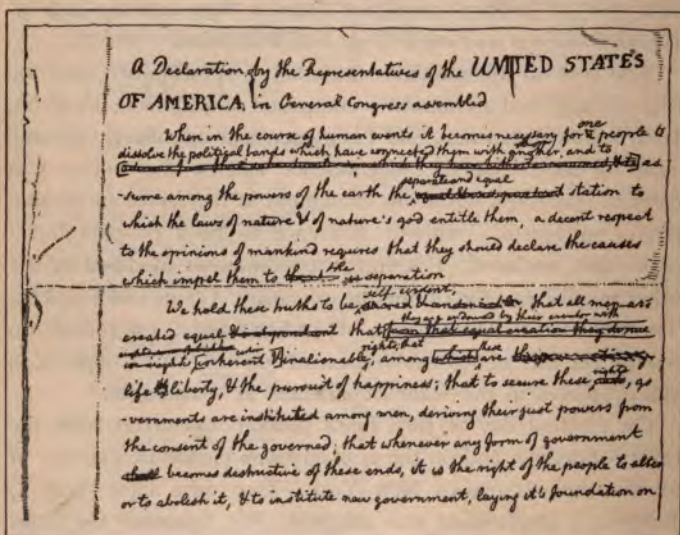 A Declaration by the Representatives of the UNITED STATES
OF AMERICA, in General Congress assembled
When in the course of human events it becomes necessary for one people to
dissolve the political bands which have connected them with another, and to
as
-sume among the powers of the earth the separate and equal station to
which the laws of nature & of nature's god entitle them, a decent respect
to the opinions of mankind requires that they should declare the causes
which impel them to the separation
We hold these truths to be self evident, that all men are
created equal that they are endowed by their creator with
rights; that
inherent & inalienable, among these are
life & liberty, & the pursuit of happiness; that to secure these rights, go
-vernments are instituted among men, deriving their just powers from
the consent of the governed; that whenever any form of government
becomes destructive of these ends, it is the right of the people to alter
or to abolish it, & to institute new government, laying it's foundation on